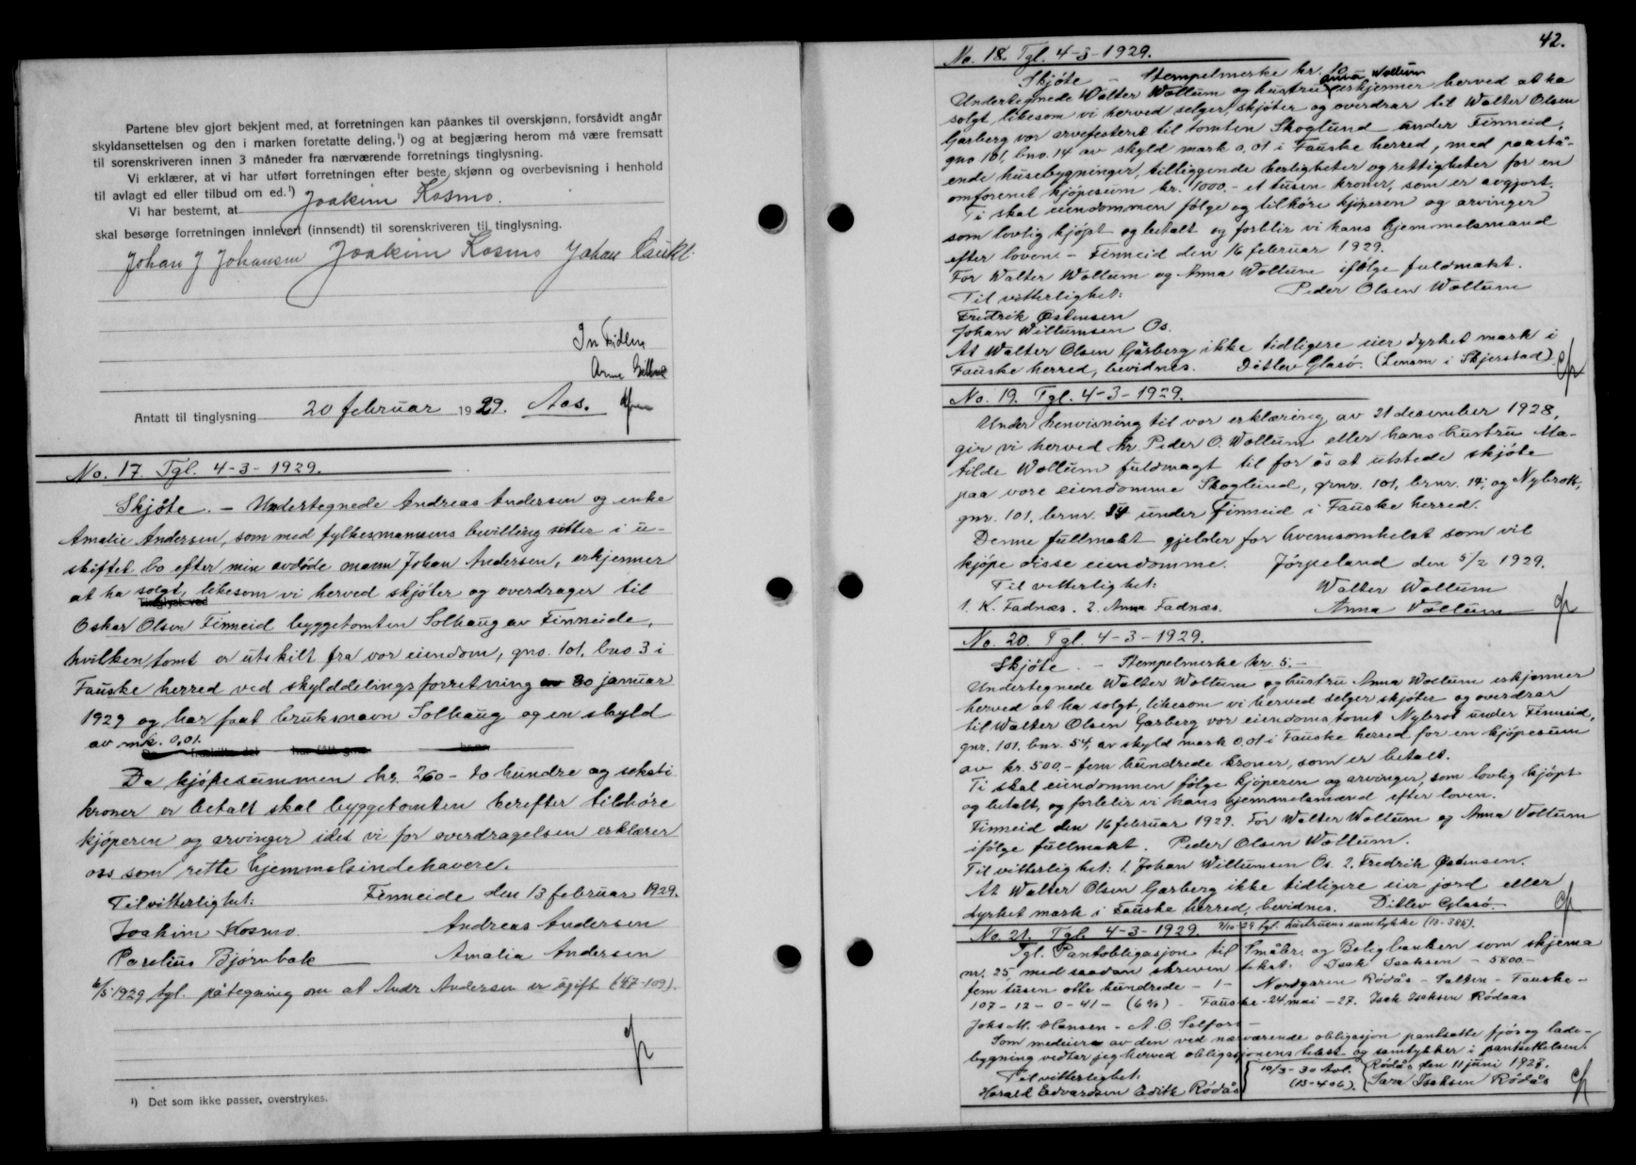 Partene blev gjort bekjent med, at forretningen kan påankes til overskjønn, forsåvidt angår
skyldansettelsen og den i marken foretatte deling,¹) og at begjæring herom må være fremsatt
til sorenskriveren innen 3 måneder fra nærværende forretnings tinglysning.
Vi erklærer, at vi har utført forretningen efter beste skjønn og overbevisning i henhold
til avlagt ed eller tilbud om ed.¹)
Vi har bestemt, at Joakim Kosmo.
skal besørge forretningen innlevert (innsendt) til sorenskriveren til tinglysning.
Johan J Johansen Joakim Kosmo Johan
Antatt til tinglysning 20 februar 1929. Aas.
No. 17. Tgl. 4-3-1929.
Skjöte. - Undertegnede Andreas Andersen og enke
Amalie Andersen, som med fylkesmannens bevilling sitter i u-
skiftet bo efter min avdöde mann Johan Andersen, erkjenner
at ha solgt, likesom vi herved skjöter og overdrager til
Oskar Olsen Finneid byggetomten Solhaug av Finneide,
hvilken tomt er utskilt fra vor eiendom, gno. 101, bno 3 i
Fauske herred ved skylddelingsforretning 30 januar
1929 og har faat bruksnavn Solhaug og en skyld
av mk. 0,01.
Da kjöpesummen kr. 260- to hundre og seksti
kroner er betalt skal byggetomten herefter tilhöre
kjöperen og arvinger idet vi for overdragelsen erklærer
oss som rette hjemmelsindehavere.
Til vitterlighet: Finneide den 13 februar 1929.
Joakim Kosmo. Andreas Andersen
Parelius Bjørnbak Amalia Andersen
6/5 1929 tgl. påtegning om at Andr Andersen er ugift (47-109).
¹) Det som ikke passer, overstrykes.
42.
No. 18. Tgl. 4-3-1929.
Skjöte - Stempelmerke kr. 10
Undertegnede Walter Wollum og hustru Anna Wollum erkjenner herved at ha
solgt, likesom vi herved selger, skjöter og overdrar til Walter Olsen
Garberg vor arvefesteret til tomten Skoglund under Finneid,
gno 101, bno. 14 av skyld mark 0,01 i Fauske herred, med paastå-
ende husebygninger, tilliggende herligheter og rettigheter for en
omforenet kjöpesum kr. 1000.- et tusen kroner, som er avgjort.
Ti skal eiendommen fölge og tilhöre kjöperen og arvinger
som lovlig kjöpt og betalt og forblir vi hans hjemmelsmand
efter loven. - Finneid den 16 februar 1929.
For Walter Wollum og Anna Wollum ifölge fuldmakt.
Til vitterlighet: Peder Olsen Wollum
Fredrik Østensen
Johan Willumsen Os.
At Walter Olsen Garberg ikke tidligere eier dyrket mark i
Fauske herred, bevidnes. Ditlev Glasö. (Lensm i Skjerstad)
No. 19. Tgl. 4-3-1929.
Under henvisning til vor erklæring av 21 december 1928,
gir vi herved hr Peder O. Wollum eller hans hustru Ma-
tilde Wollum fuldmagt til for os at utstede skjöte
paa vore eiendomme Skoglund, grnr. 101, brnr. 14, og Nybrot,
gnr. 101, brnr. 54 under Finneid i Fauske herred.
Denne fullmakt gjelder for hvemsomhelst som vil
kjöpe disse eiendomme. Jörpeland den 5/2 1929.
Til vitterlighet: Walter Wollum
1. K. Fadnæs. 2. Anna Fadnæs. Anna Vollum
No. 20. Tgl. 4-3-1929.
Skjöte. - Stempelmerke kr. 5.-
Undertegnede Walter Wollum og hustru Anna Wollum erkjenner
herved at ha solgt, likesom vi herved selger skjöter og overdrar
til Walter Olsen Garberg vor eiendomstomt Nybrot under Finneid,
gnr. 101, bnr. 54, av skyld mark 0,01 i Fauske herred for en kjöpesum
av kr. 500.- fem hundrede kroner, som er betalt.
Ti skal eiendommen fölge kjöperen og arvinger, som lovlig kjöpt
og betalt, og forblir vi hans hjemmelsmænd efter loven.
Finneid den 16 februar 1929. For Walter Wollum og Anna Vollum
ifölge fullmakt. Peder Olsen Wollum.
Til vitterlighet: 1. Johan Willumsen Os. 2. Fredrik Østensen.
At Walter Olsen Garberg ikke tidligere eier jord eller
dyrket mark i Fauske herred, bevidnes. Ditlev Glasö.
No. 21. Tgl. 4-3-1929. tgl. hustruens samtykke (13-385).
Tgl. Pantobligasjon til Småbr. og Boligbanken som skjema
nr. 25 med saadan skreven tekst: Isak Isaksen - 5800.-
fem tusen otte hundrede - 1 - Nordgaren Rödås - Salten - Fauske -
107-12-0-41- (6%) - Fauske - 24 mai - 27. Isak Isaksen Rödaas
Johs M. Hansen - A. O. Selfors -
Som medeiere av den ved nærværende obligasjon pantsatte fjös og lade-
bygning vedtar jeg herved obligasjonens tekst og samtykker i pantsettelsen.
Til vitterlighet: 10/3-30 avl. Rödås den 11 juni 1927.
Harald Edvardsen Edith Rödås (13-406). Sara Isaksen Rödås